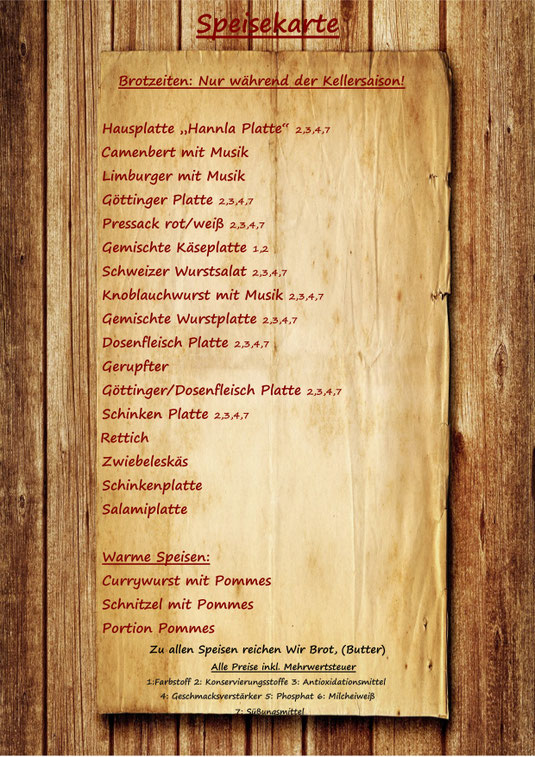 Speisekarte
Brotzeiten: Nur während der Kellersaison!
Hausplatte „Hannla Platte“ 2,3,4,7
Camenbert mit Musik
Limburger mit Musik
Göttinger Platte 2,3,4,7
Pressack rot/weiß 2,3,4,7
Gemischte Käseplatte 1,2
Schweizer Wurstsalat 2,3,4,7
Knoblauchwurst mit Musik 2,3,4,7
Gemischte Wurstplatte 2,3,4,7
Dosenfleisch Platte 2,3,4,7
Gerupfter
Göttinger/Dosenfleisch Platte 2,3,4,7
Schinken Platte 2,3,4,7
Rettich
Zwiebeleskäs
Schinkenplatte
Salamiplatte
Warme Speisen:
Currywurst mit Pommes
Schnitzel mit Pommes
Portion Pommes
Zu allen Speisen reichen Wir Brot, (Butter)
Alle Preise inkl. Mehrwertsteuer
1:Farbstoff 2: Konservierungsstoffe 3: Antioxidationsmittel
4: Geschmacksverstärker 5: Phosphat 6: Milcheiweiß
7: Süßungsmittel